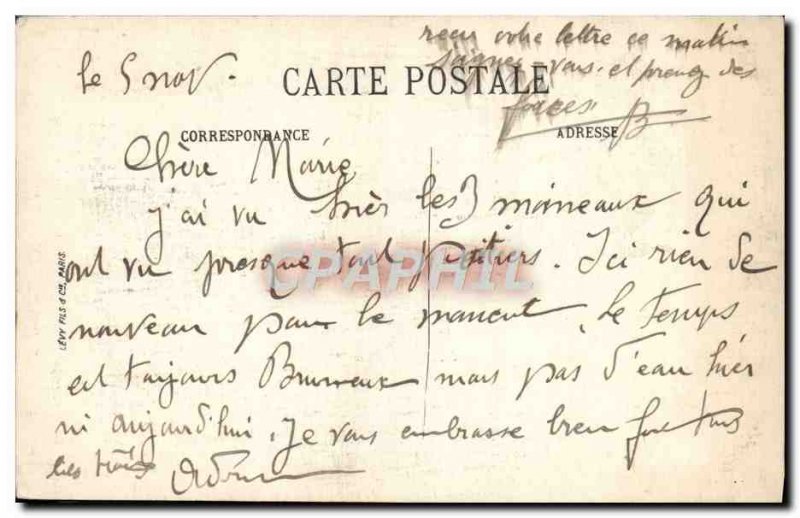 reçu votre lettre ce matin
soignez vous. et prenez des
forces B
le 5 nov.
CARTE POSTALE
CORRESPONDANCE
ADRESSE
Chère Marie
j'ai vu hier les 3 moineaux qui
ont vu presque tout Poitiers. Ici rien de
nouveau pour le moment. Le temps
est toujours Brumeux mais pas d'eau hier
ni aujourd'hui. Je vous embrasse bien fort tous
les trois
LÉVY FILS & Cie, PARIS
CPAPHIL